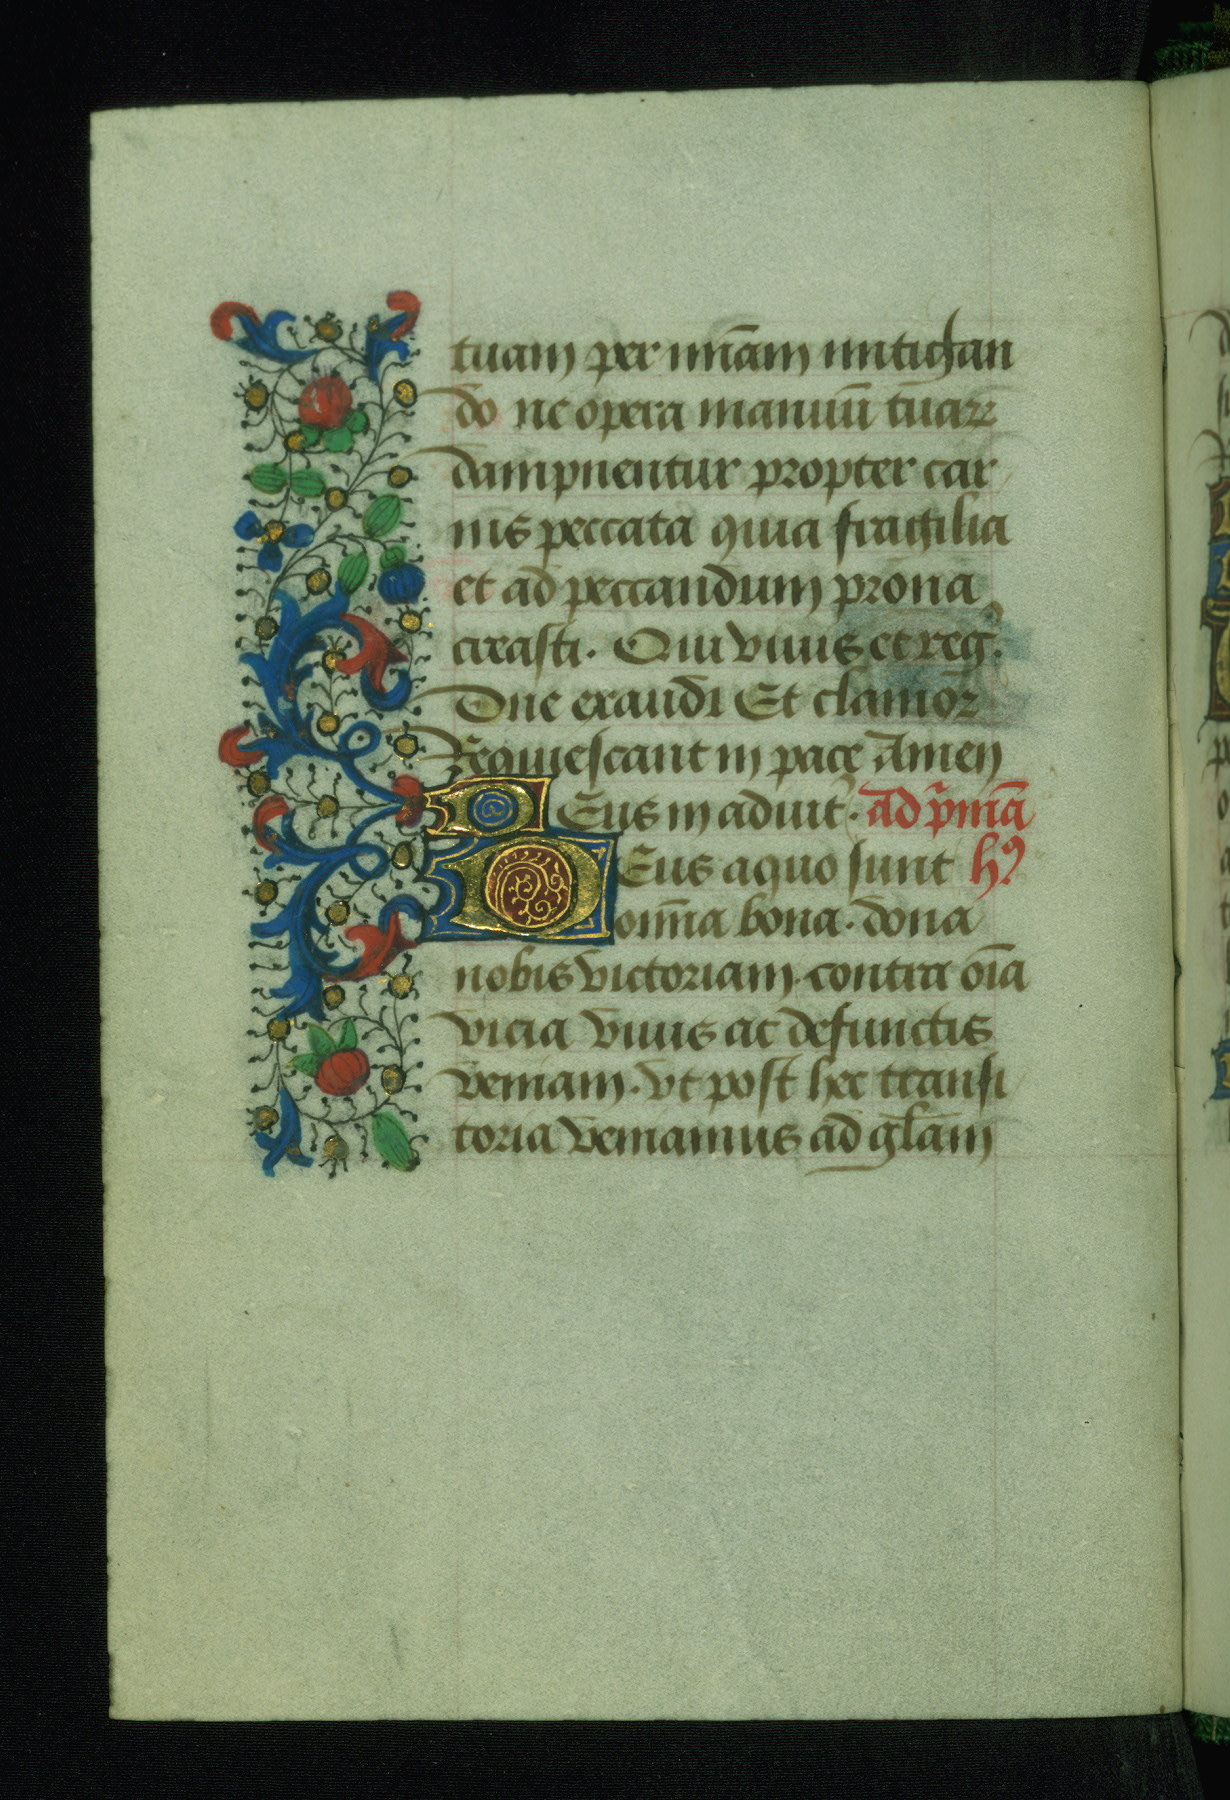 tuam per mīam mitigan
do ne opera manuū tuaꝝ
dampnentur propter car
nis peccata quia fragilia
et ad peccandum prona
creasti. Qui viuis et reg.
Dne exaudi Et clamor
Requiescant in pace Amen
Deus in adiut. ad pͥmā
Deus a quo sunt hꝰ
om̄ia bona. dona
nobis victoriam. contra oīa
vicia viuis ac defunctis
veniam. vt post hec transi
toria veniamus ad gl̄am